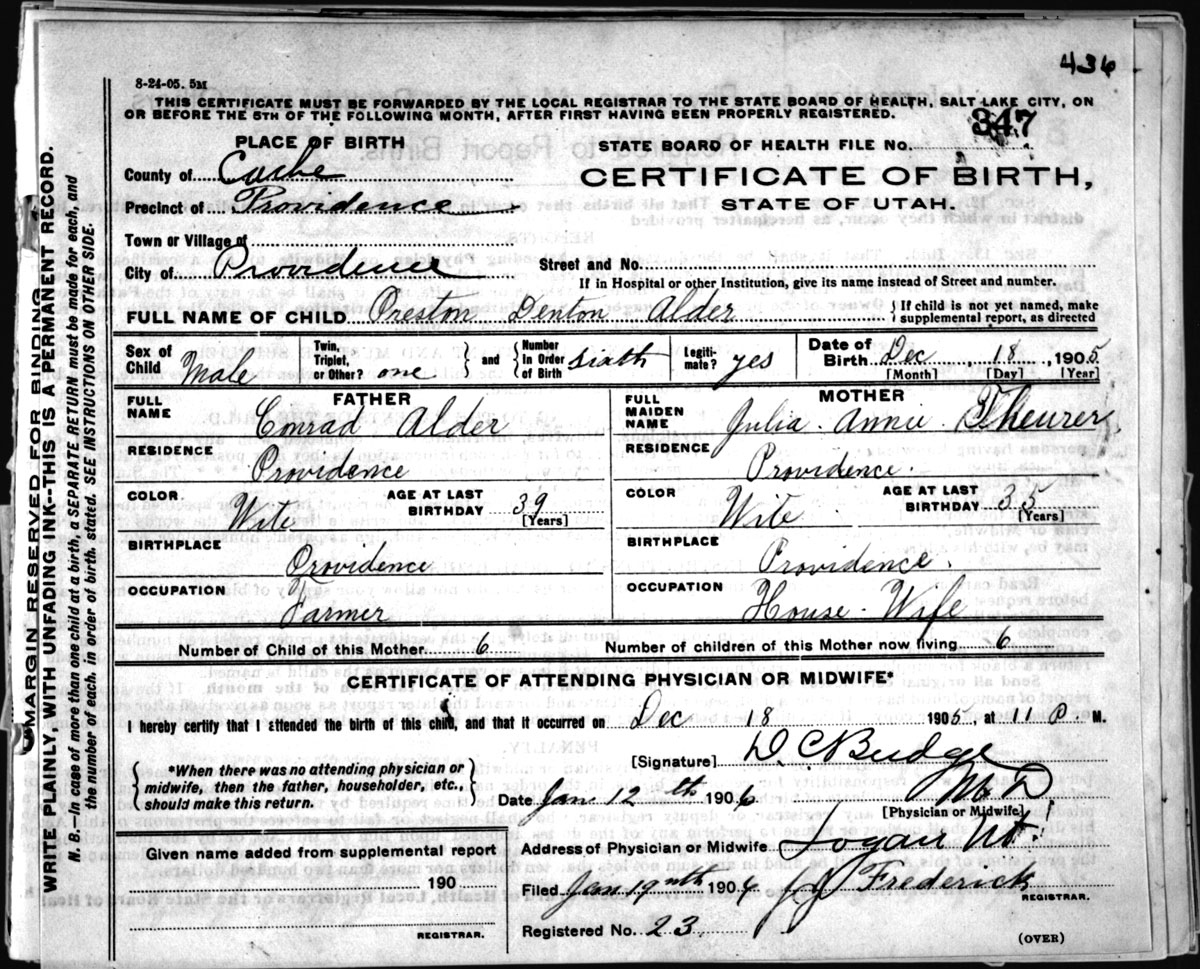 436
8-24-05. 5M
THIS CERTIFICATE MUST BE FORWARDED BY THE LOCAL REGISTRAR TO THE STATE BOARD OF HEALTH, SALT LAKE CITY, ON
OR BEFORE THE 5TH OF THE FOLLOWING MONTH, AFTER FIRST HAVING BEEN PROPERLY REGISTERED.
347
PLACE OF BIRTH
STATE BOARD OF HEALTH FILE No.
County of Cache
CERTIFICATE OF BIRTH,
Precinct of Providence
STATE OF UTAH.
Town or Village of
City of Providence
Street and No.
If in Hospital or other Institution, give its name instead of Street and number.
FULL NAME OF CHILD Oreston Denton Alder { If child is not yet named, make
supplemental report, as directed
Sex of Child Male
Twin, Triplet, or Other? one } and { Number in Order of Birth sixth
Legiti-mate? yes
Date of Birth Dec 18, 1905
[Month] [Day] [Year]
FATHER
MOTHER
FULL NAME Conrad Alder
FULL MAIDEN NAME Julia. Annie. Theurer
RESIDENCE Providence
RESIDENCE Providence.
COLOR Wite AGE AT LAST BIRTHDAY 39 [Years]
COLOR Wite AGE AT LAST BIRTHDAY 35 [Years]
BIRTHPLACE Providence
BIRTHPLACE Providence.
OCCUPATION Farmer
OCCUPATION House-Wife
Number of Child of this Mother 6
Number of children of this Mother now living 6
CERTIFICATE OF ATTENDING PHYSICIAN OR MIDWIFE*
I hereby certify that I attended the birth of this child, and that it occurred on Dec 18 1905, at 11 P. M.
{ *When there was no attending physician or
midwife, then the father, householder, etc.,
should make this return. }
[Signature] D. C. Budge
M D
[Physician or Midwife]
Date Jan 12 th 1906
Given name added from supplemental report
190
REGISTRAR.
Address of Physician or Midwife Logan Ut.
Filed Jan 19 1906 Frederick
REGISTRAR.
Registered No. 23
(OVER)
MARGIN RESERVED FOR BINDING
WRITE PLAINLY, WITH UNFADING INK--THIS IS A PERMANENT RECORD.
N. B.--In case of more than one child at a birth, a SEPARATE RETURN must be made for each, and
the number of each. in order of birth. stated. SEE INSTRUCTIONS ON OTHER SIDE.